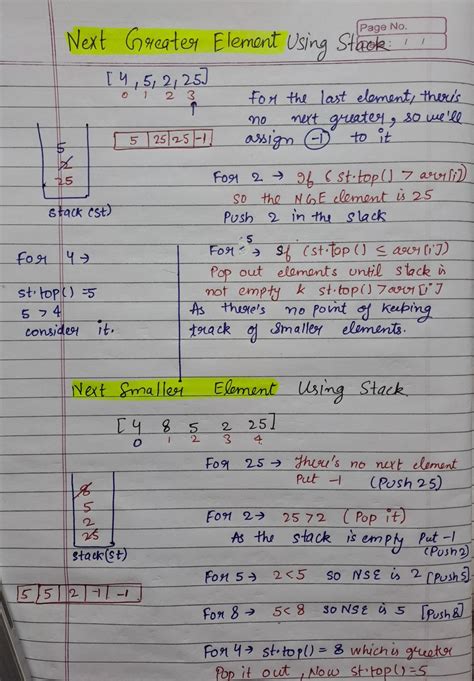 Page No.
Date: / /
Next Greater Element Using Stack
[4, 5, 2, 25]
0 1 2 3
5 25 25 -1
For the last element, there's
no next greater, so we'll
assign -1 to it
5
2
25
Stack (st)
For 2 → If (st.top() > arr[i])
so the NGE element is 25
Push 2 in the stack
For 4 →
st.top() = 5
5 > 4
consider it.
For 5 → If (st.top() ≤ arr[i])
Pop out elements until stack is
not empty & st.top() > arr[i]
As there's no point of keeping
track of smaller elements.
Next Smaller Element Using Stack
[4 8 5 2 25]
0 1 2 3 4
For 25 → There's no next element
Put -1 (Push 25)
8
5
2
25
Stack(st)
For 2 → 25 > 2 (Pop it)
As the stack is empty Put -1
(Push 2)
5 5 2 -1 -1
For 5 → 2 < 5 so NSE is 2 [Push 5]
For 8 → 5 < 8 so NSE is 5 [Push 8]
For 4 → st.top() = 8 which is greater
Pop it out, Now st.top() = 5